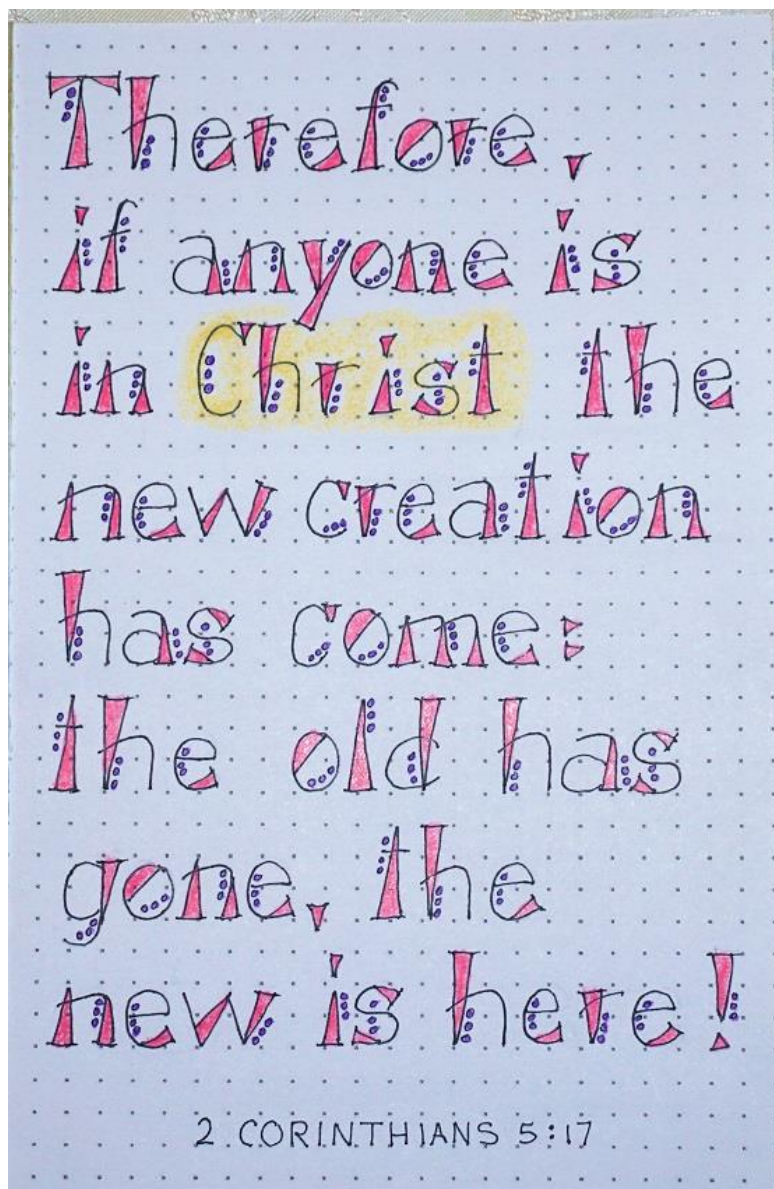 Therefore,
if anyone is
in Christ the
new creation
has come:
the old has
gone, the
new is here!
2 CORINTHIANS 5:17